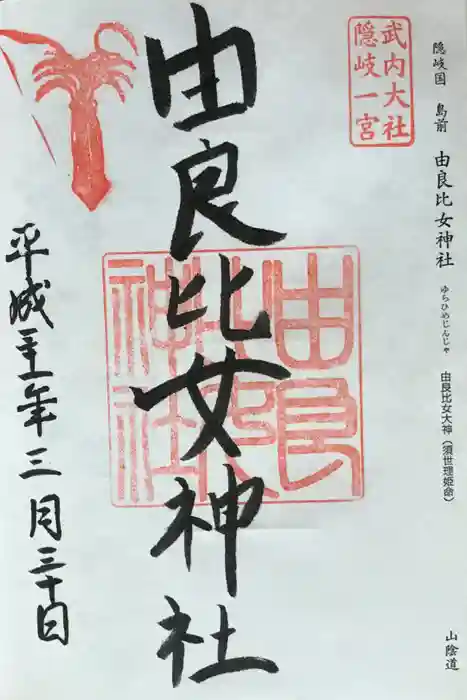 隠岐国 島前 由良比女神社 ゆらひめじんじゃ 由良比女大神（須世理姫命） 山陰道
武内大社
隠岐一宮
由良比女神社
由良
比女
神社
平成三十一年三月三十日